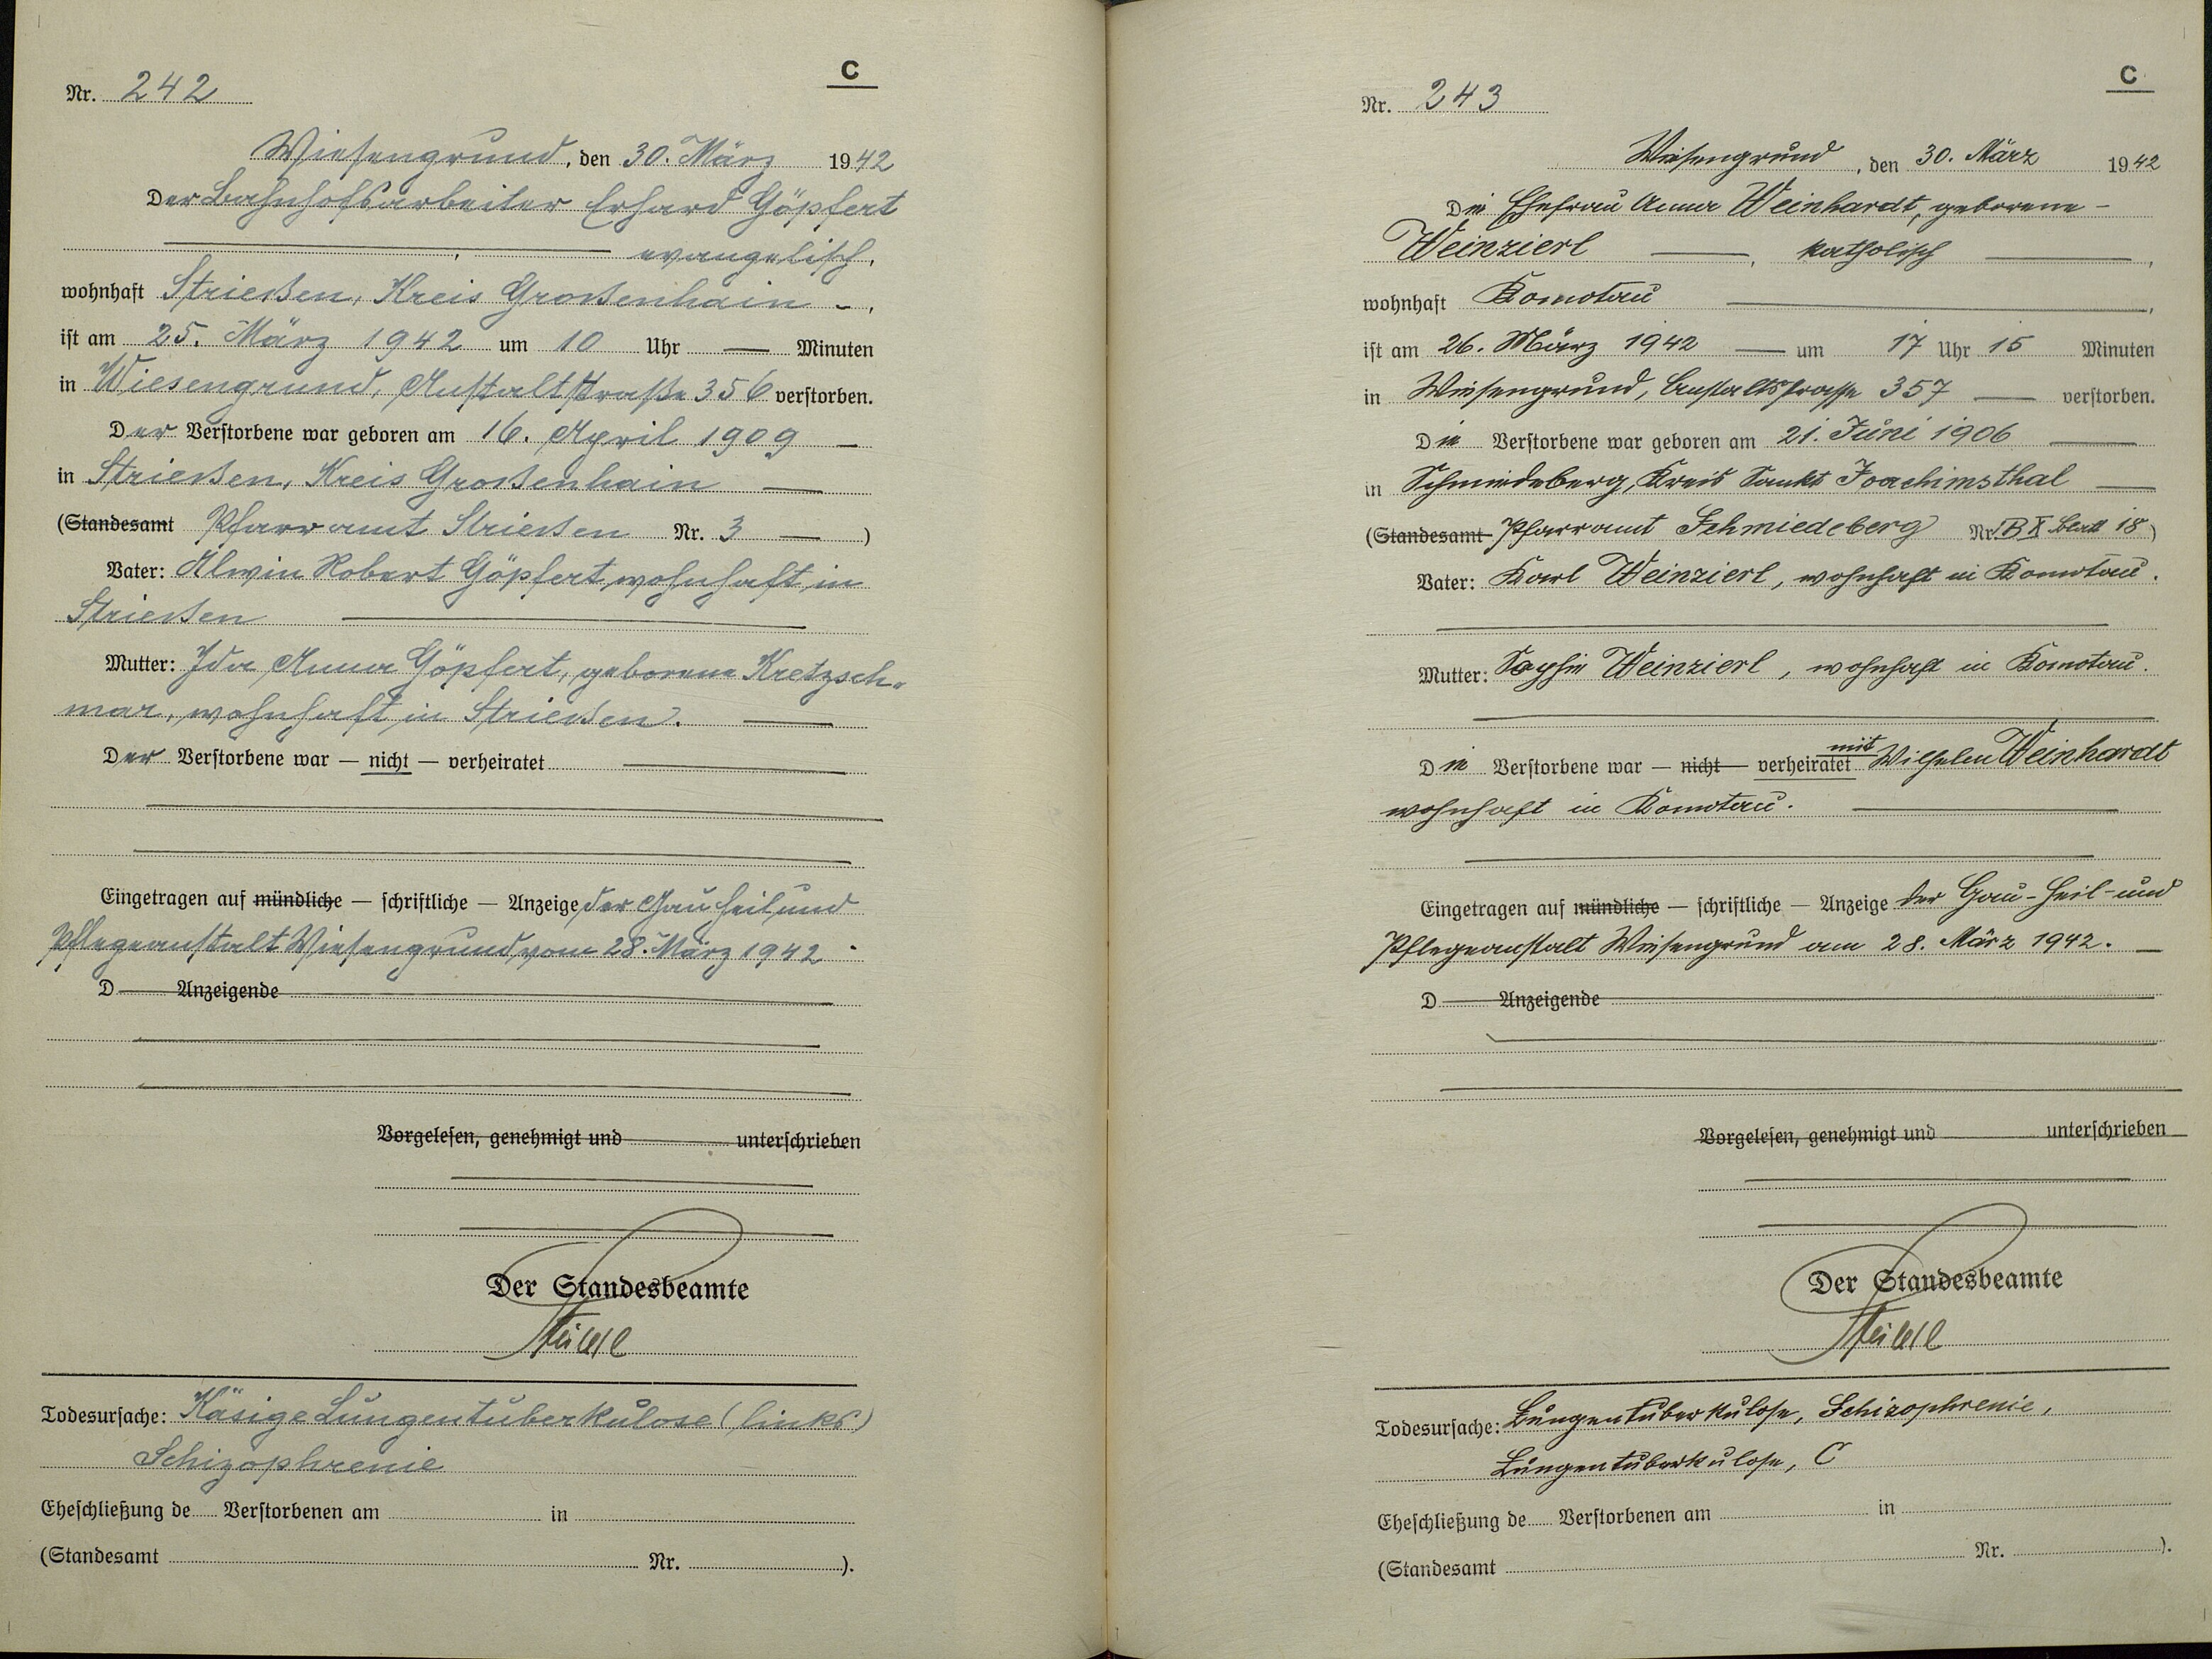 C
Nr. 242
Wiesengrund, den 30. März 1942
Der Bahnhofsarbeiter Erhard Göpfert
evangelisch,
wohnhaft Strießen, Kreis Großenhain -,
ist am 25. März 1942 um 10 Uhr — Minuten
in Wiesengrund, Anstaltstraße 356 verstorben.
Der Verstorbene war geboren am 16. April 1909 —
in Strießen, Kreis Großenhain —
(Standesamt Pfarramt Strießen Nr. 3 — )
Vater: Alwin Robert Göpfert, wohnhaft in
Strießen
Mutter: Ida Anna Göpfert, geborene Kretzsch-
mar, wohnhaft in Strießen.
Der Verstorbene war — nicht — verheiratet
Eingetragen auf mündliche — schriftliche — Anzeige der Gau Heil und
Pflegeanstalt Wiesengrund vom 28. März 1942.
D Anzeigende
Vorgelesen, genehmigt und unterschrieben
Der Standesbeamte
Todesursache: Käsige Lungentuberkulose (links)
Schizophrenie
Eheschließung de Verstorbenen am in
(Standesamt Nr. ).
C
Nr. 243
Wiesengrund, den 30. März 1942
Die Ehefrau Anna Weinhardt, geborene -
Weinzierl —, katholisch —,
wohnhaft Komotau —,
ist am 26. März 1942 — um 17 Uhr 15 Minuten
in Wiesengrund, Anstaltsstrasse 357 — verstorben.
Die Verstorbene war geboren am 21. Juni 1906 —
in Schmiedeberg, Kreis Sankt Joachimsthal —
(Standesamt Pfarramt Schmiedeberg Nr. B X Blatt 18)
Vater: Karl Weinzierl, wohnhaft in Komotau.
Mutter: Sophie Weinzierl, wohnhaft in Komotau.
Die Verstorbene war — nicht — verheiratet mit Wilhelm Weinhardt
wohnhaft in Komotau.
Eingetragen auf mündliche — schriftliche — Anzeige der Gau-Heil-und
Pflegeanstalt Wiesengrund am 28. März 1942. —
D Anzeigende
Vorgelesen, genehmigt und unterschrieben
Der Standesbeamte
Todesursache: Lungentuberkulose, Schizophrenie,
Lungentuberkulose, C
Eheschließung de Verstorbenen am in
(Standesamt Nr. ).